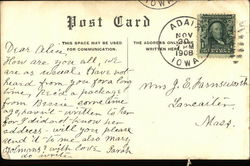 Post Card
THIS SPACE MAY BE USED
FOR COMMUNICATION.
THE ADDRESS ONLY
WRITTEN HERE
ADAIR
NOV
30
PM
1908
IOWA
IOWA
Dear Alice,
How are you all, we
are as usual. Have not
heard from you for a long
time. Rec'd a package
from Bessie sometime
ago want written to her
for I did not know her
address - will you please
send it to me also Mary
Dolmans? with love Sarah
do write
Mrs J. E. Farnsworth
Lancaster,
Mass.